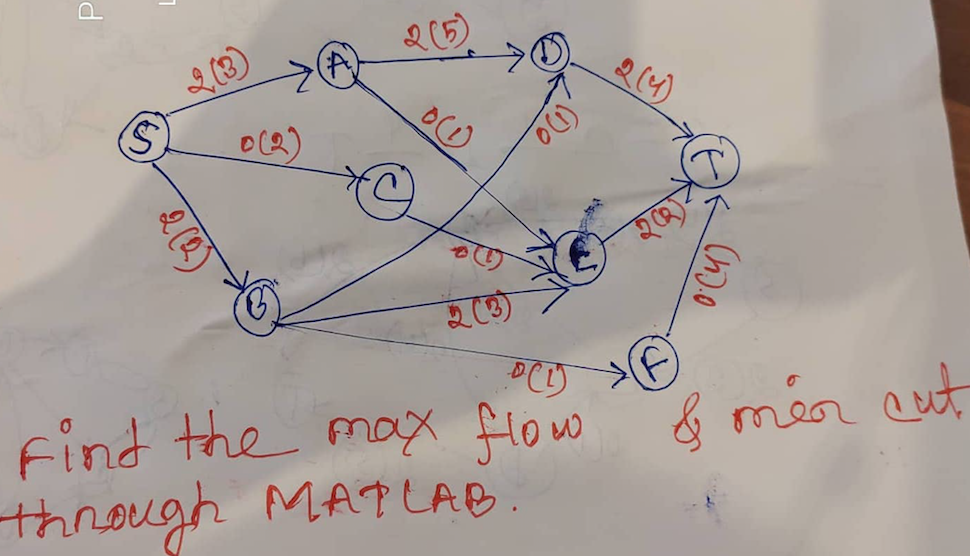 P
2(3)
A
2(5)
D
2(4)
S
0(2)
0(1)
0(1)
T
C
2(2)
0(1)
E
2(2)
B
2(3)
0(4)
0(1)
F
Find the max flow & min cut
through MATLAB.